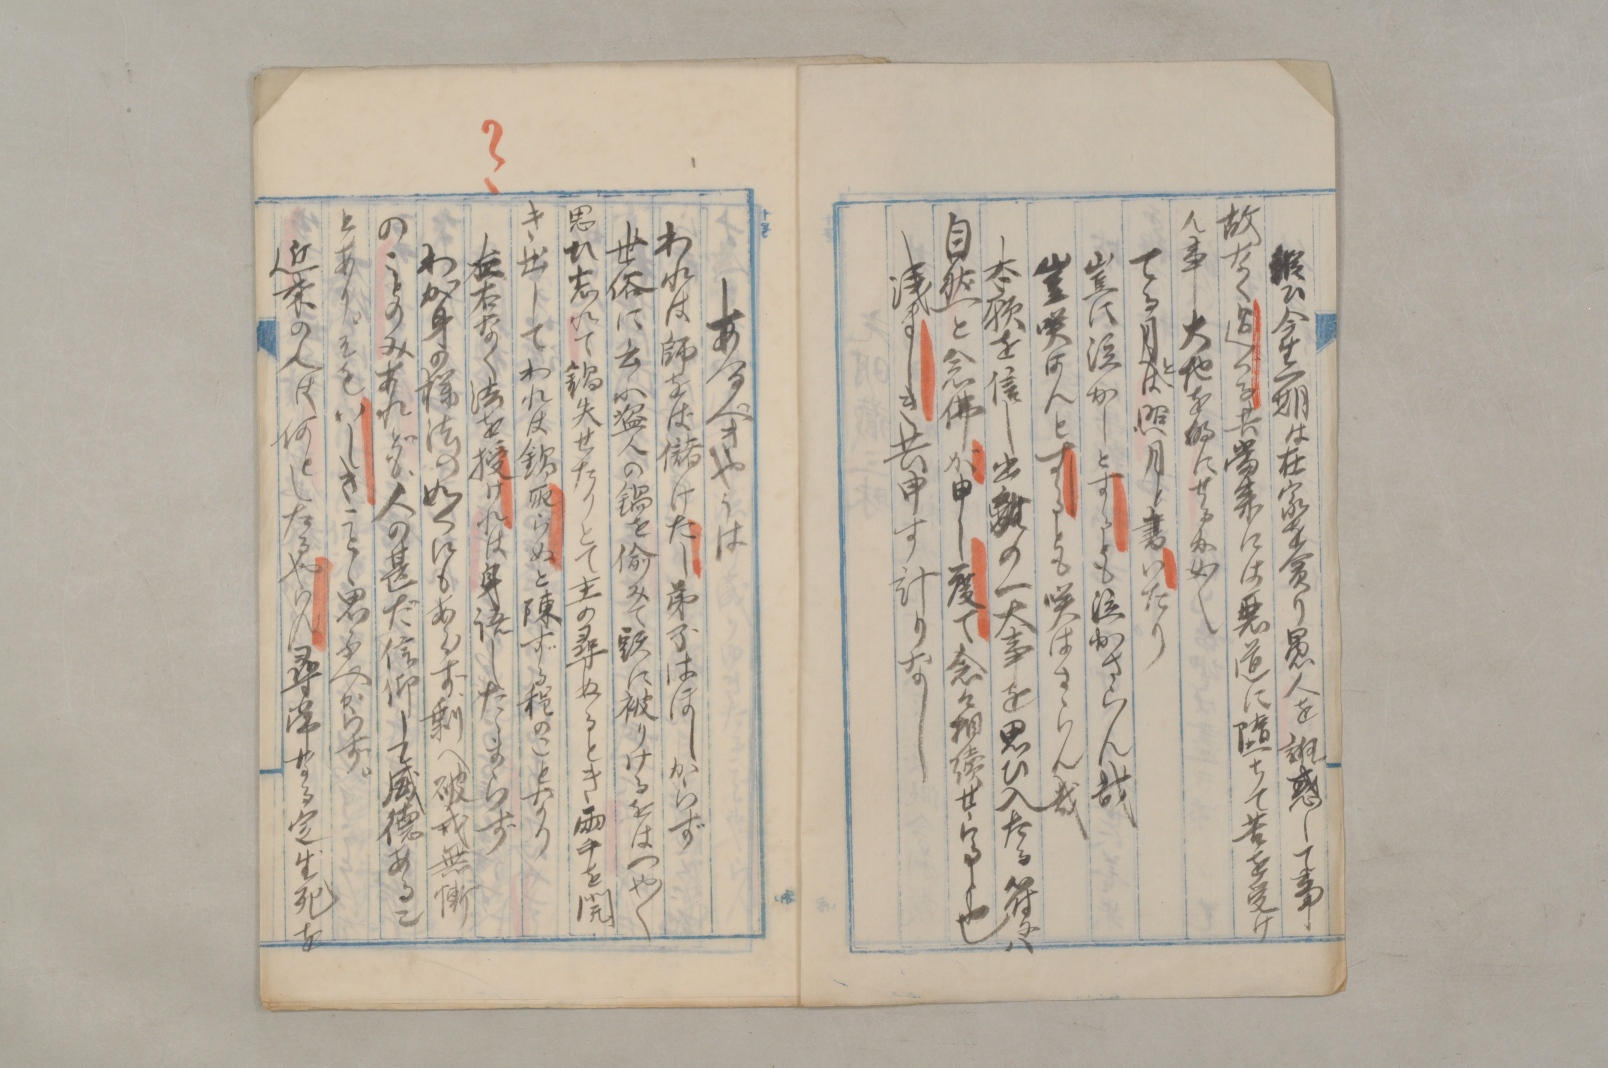 縦ひ今生一期は在家を貪り愚人を誑惑して事
故なく過つる共当来には悪道に堕ちて苦を受け
ん事大地を的にするか如く
てる月は照月と書いたり
豈に泣かしとすとも泣かさらん哉
豈咲はんとするとも咲はさらん哉
本願を信し出離の一大事を思ひ入たる
自然と念佛か申し度て念々相續せらるゝ也
浅ましき共申す計りなし
あるべきやうは
われは師をば儲けたし弟子はほしからず
世俗に云小盗人の鍋を偸みて頭に被りけるをはつや〱
思ひ忘れて鍋失せたりとて主の尋ぬるとき両手を開
き出してわれは鍋取らぬと陳ずる程のことなり
左右なく法を授けれは身語したまらず
わが身の様法の如くにもあらず剰へ破戒無慚
のことのみあれどか人の甚だ信仰して威徳あるこ
とあり。それをいしきことゝ思ふべからず。
近来の人は何としたるやらん尋常せる定生死を